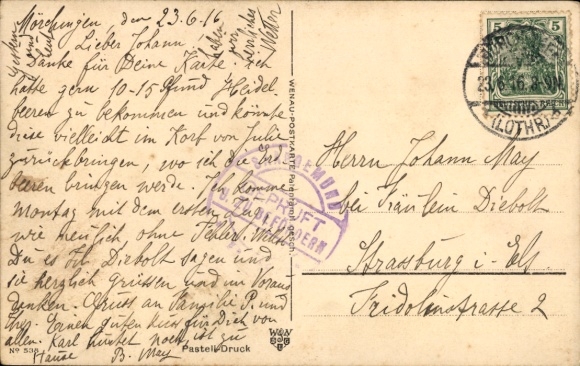 Mörchingen den 23.6.16
Lieber Johann
Danke für Deine Karte. Ich
hätte gern 10-15 Pfund Heidel
beeren zu bekommen und könnte
diese vielleicht im Korb von Julie
zurückbringen, wo ich die Erd
beeren bringen werde. Ich komme
Montag mit dem ersten Zug
wie neulich, ohne
Du es Frl. Diebolt sagen und
sie herzlich grüssen und im Voraus
danken. Gruss an Familie P. und
guten Kuss für Dich von
allen. Karl hustet noch, ist zu
Hause B. May
Gestern
und
heute
haben
wir
herrliches
Wetter
WENAU-POSTKARTE
Nº 538
Pastell-Druck
5 5
23.6.16. 8-9N
(LOTHR)
GEPRÜFT
Herrn Johann May
bei Fräulein Diebolt
Strassburg i. Els.
Fridolinstrasse 2